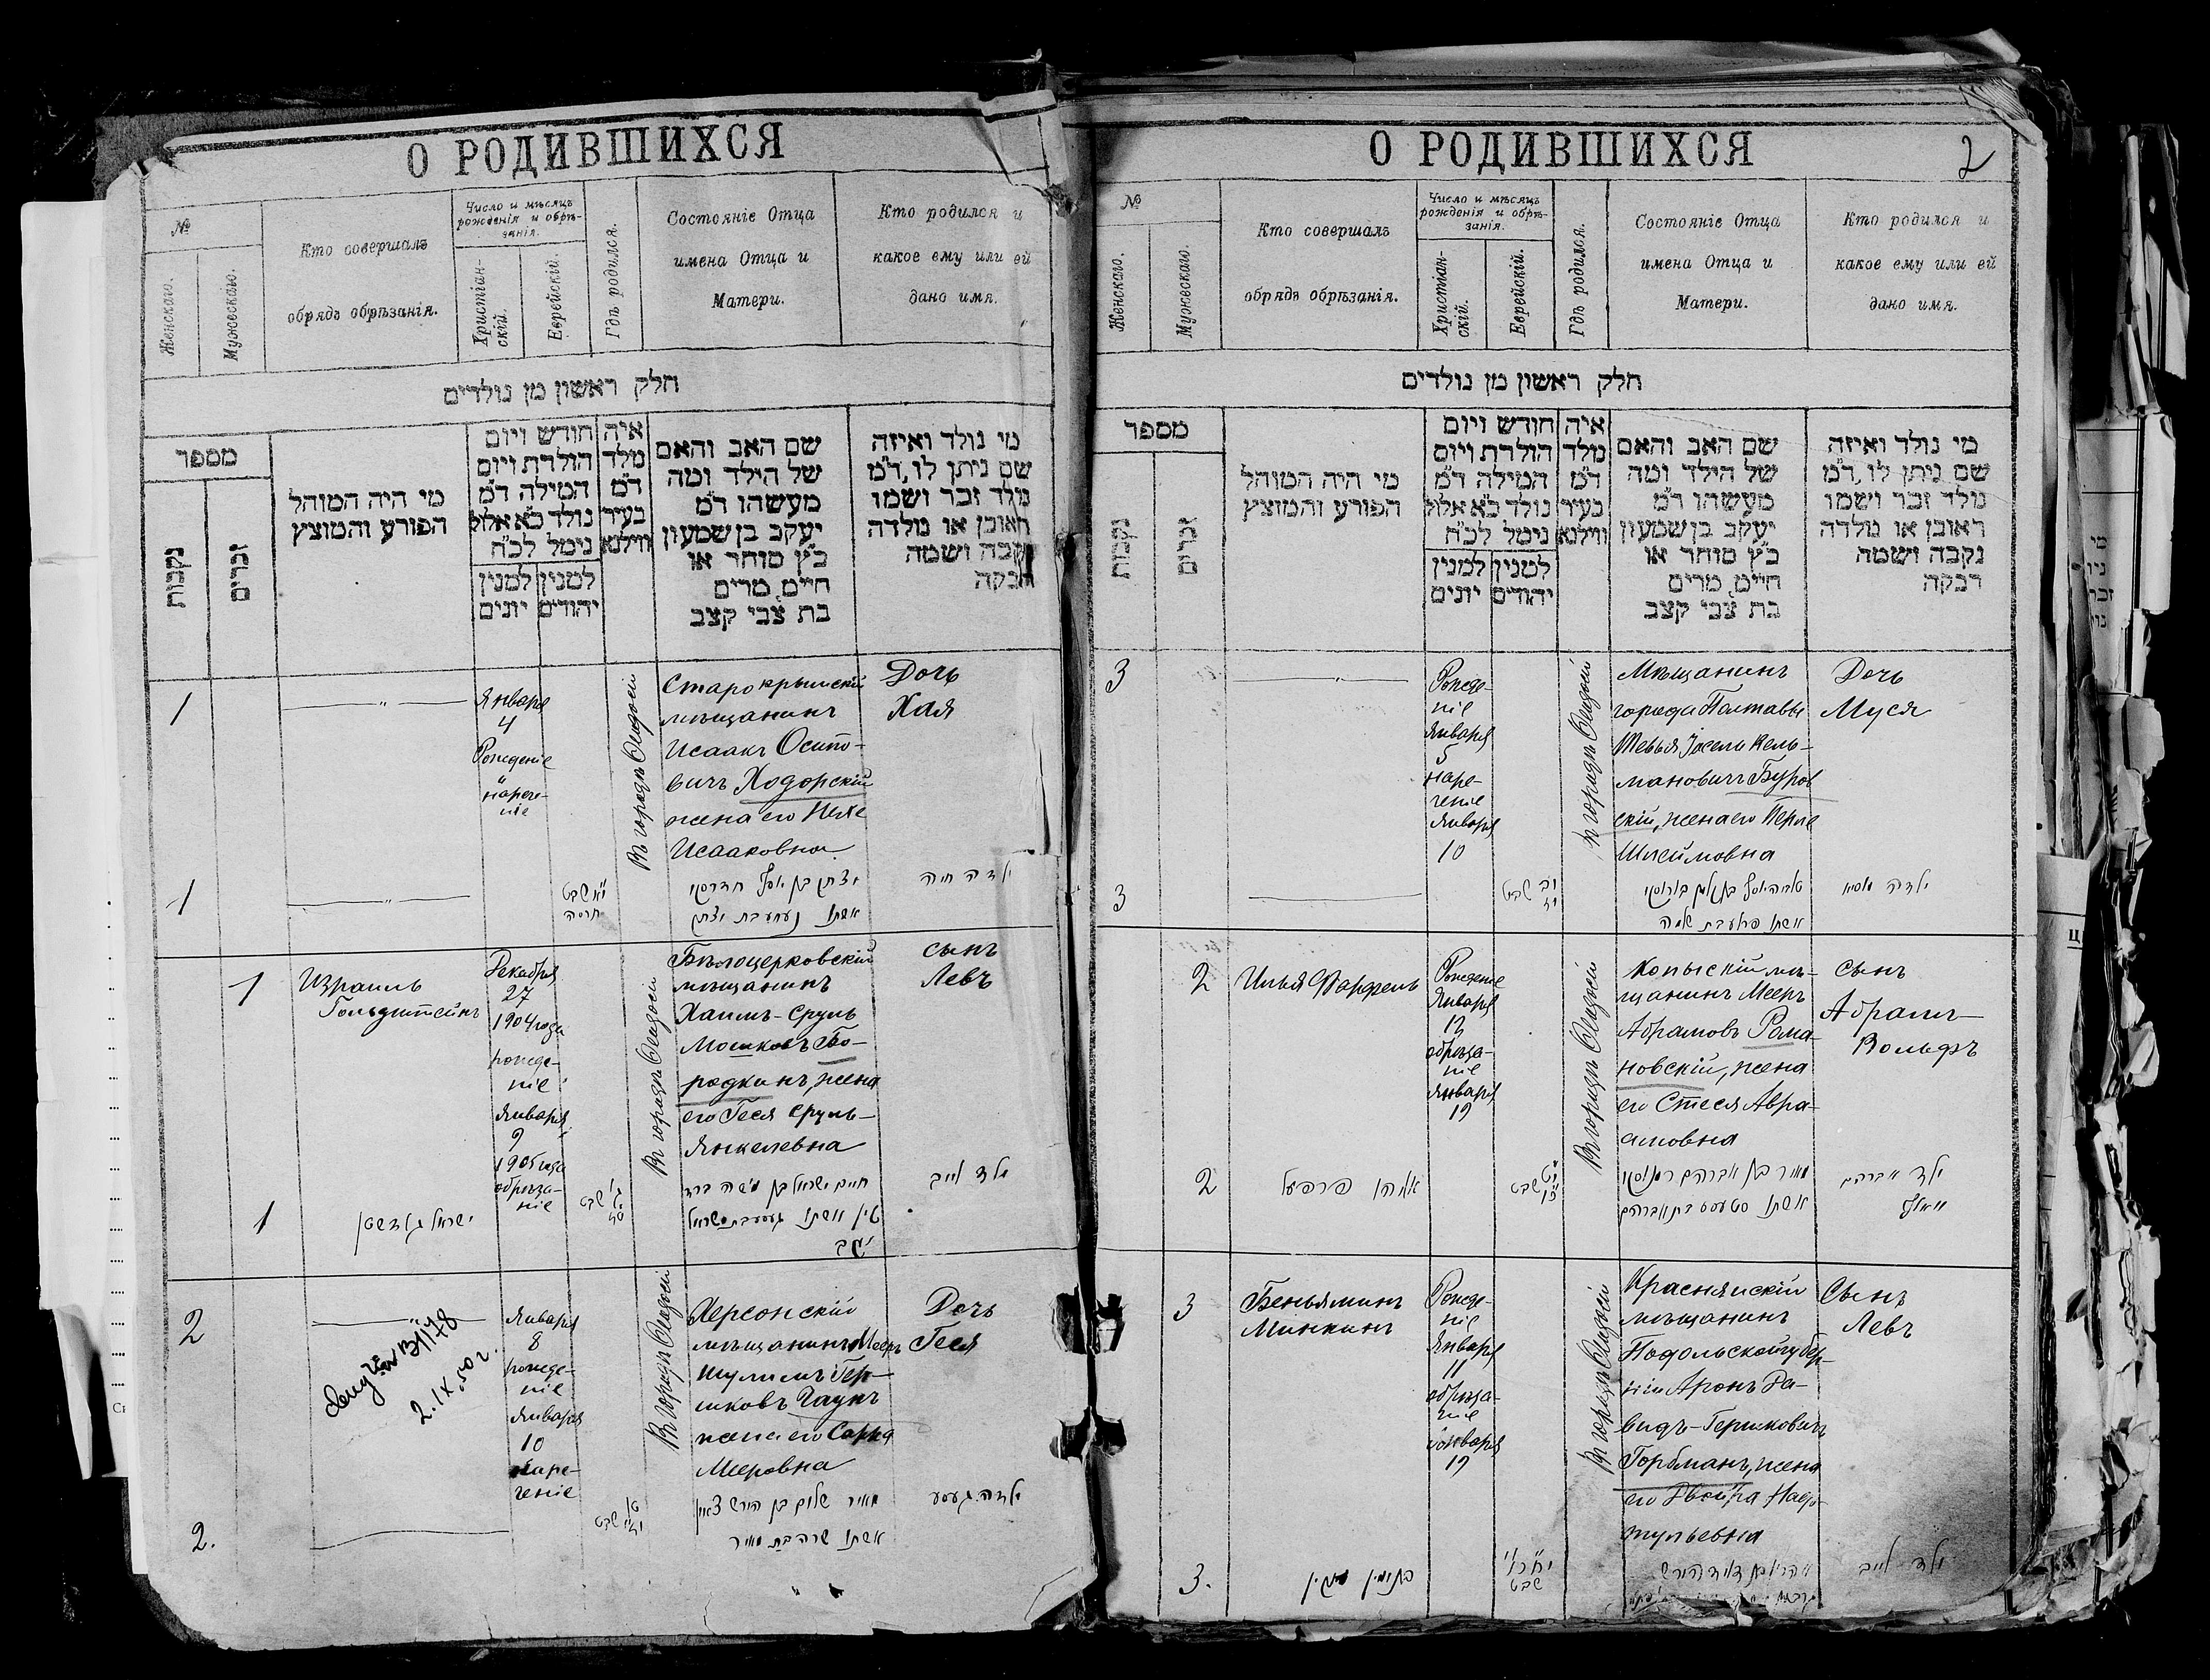 О РОДИВШИХСЯ
№
Женскаго.
Мужескаго.
Кто совершалъ
обрядъ обрѣзанія.
Число и мѣсяцъ
рожденія и обрѣ-
занія.
Христіан-
скій.
Еврейскій.
Гдѣ родился.
Состояніе Отца
имена Отца и
Матери.
Кто родился и
какое ему или ей
дано имя.
חלק ראשון מן נולדים
מספר
נקבות
זכרים
מי היה המוהל
הפורע והמוצץ
חודש ויום
הולדת ויום
המילה ד״מ
נולד כ״א אלול
נימל לכ״ח
למנין למנין
יהודים יונים
איה
מלד
ד״מ
בעיר
ווילנא
שם האב והאם
של הילד ומה
מעשהו ד״מ
יעקב בן שמעון
כ״ץ סוחר או
חיים, מרים
בת צבי קצב
מי נולד ואיזה
שם ניתן לו, ד״מ
נולד זכר ושמו
ראובן או נולדה
נקבה ושמה
רבקה
1
Января
4
Рожденіе
и
нарече-
ніе
Въ городѣ Ѳеодосіи
Старокрымскій
мѣщанинъ
Исаакъ Осипо-
вичъ Ходорскій
жена его Нехе
Исааковна
Дочь
Хая
1
י״א שבט
יצחק בן יוסף חדרסקי
ילדה חיה
1
Израиль
Гольдштейнъ
Декабря
27
1904 года
рожде-
ніе
Января
9
1905 года
обрѣза-
ніе
Въ городѣ Ѳеодосіи
Бѣлоцерковскій
мѣщанинъ
Хаимъ-Сруль
Мошковъ Бо-
родкинъ, жена
его Геся Сруль-
Янкелевна
сынъ
Левъ
1
ישראל גאלדשטיין
שבט
חיים ישראל בן משה ברד
ילד לייב
2
Января
8
рожде-
ніе
Января
10
наре-
ченіе
2.IX.50 г.
Въ городѣ Ѳеодосіи
Херсонскій
мѣщанинъ Мееръ
Шулимъ Гер-
шковъ Чаунъ
жена его Сарра
Мееровна
Дочь
Геся
2.
שבט
מאיר שלום בן הירש
אשתו שרה בת מאיר
ילדה געסע
О РОДИВШИХСЯ
2
№
Женскаго.
Мужескаго.
Кто совершалъ
обрядъ обрѣзанія.
Число и мѣсяцъ
рожденія и обрѣ-
занія.
Христіан-
скій.
Еврейскій.
Гдѣ родился.
Состояніе Отца
имена Отца и
Матери.
Кто родился и
какое ему или ей
дано имя.
חלק ראשון מן נולדים
מספר
נקבות
זכרים
מי היה המוהל
הפורע והמוצץ
חודש ויום
הולדת ויום
המילה ד״מ
נולד כ״א אלול
נימל לכ״ח
למנין למנין
יהודים יונים
איה
מלד
ד״מ
בעיר
ווילנא
שם האב והאם
של הילד ומה
מעשהו ד״מ
יעקב בן שמעון
כ״ץ סוחר או
חיים, מרים
בת צבי קצב
מי נולד ואיזה
שם ניתן לו, ד״מ
נולד זכר ושמו
ראובן או נולדה
נקבה ושמה
רבקה
3
Рожде-
ніе
Января
5
наре-
ченіе
Января
10
Въ городѣ Ѳеодосіи
Мѣщанинъ
города Полтавы
Тевья Іосель Кель-
мановичъ Буров-
скій, жена его Перле
Шлеймовна
Дочь
Муся
3
שבט
ילדה מוסיא
2
Илья Фарфель
Рожденіе
Января
12
обрѣза-
ніе
Января
19
Въ городѣ Ѳеодосіи
Копыскій мѣ-
щанинъ Мееръ
Абрамовъ Рама-
новскій, жена
его Стеся Авра-
амовна
сынъ
Абрамъ-
Вольфъ
2
אליהו פרפעל
שבט
מאיר בן אברהם
אשתו סטעסע בת אברהם
ילד אברהם
וואלף
3
Беньяминъ
Минкинъ
Рожде-
ніе
Января
11
обрѣза-
ніе
Января
19
Въ городѣ Ѳеодосіи
Краснянскій
мѣщанинъ
Подольской губер-
ніи Аронъ Да-
видъ-Гершковичъ
Горбманъ, жена
его Двойра Наф-
тульевна
Сынъ
Левъ
3.
בנימין מינקין
שבט
ילד לייב